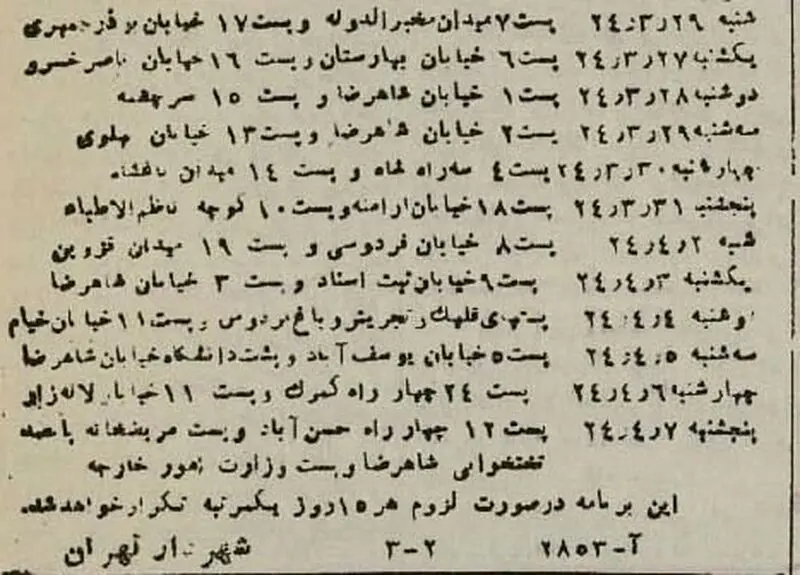 شنبه ۲۴ر۳ر۲۹ پست۷ میدان مخبرالدوله و پست۱۷ خیابان بوذرجمهری
یکشنبه ۲۴ر۳ر۲۷ پست۶ خیابان بهارستان و پست ۱۶ خیابان ناصرخسرو
دوشنبه ۲۴ر۳ر۲۸ پست۱ خیابان شاهرضا و پست ۱۵ سرچشمه
سه‌شنبه ۲۴ر۳ر۲۹ پست۲ خیابان شاهرضا و پست۱۳ خیابان پهلوی
چهارشنبه ۲۴ر۳ر۳۰ پست۴ سه‌راه شاه و پست ۱۴ میدان باغشاه
پنجشنبه ۲۴ر۳ر۳۱ پست۱۸ خیابان ارامنه و پست۱۰ کوچه ناظم‌الاطباء
شنبه ۲۴ر۴ر۲ پست۸ خیابان فردوسی و پست ۱۹ میدان قزوین
یکشنبه ۲۴ر۴ر۳ پست۹ خیابان ثبت اسناد و پست ۳ خیابان شاهرضا
دوشنبه ۲۴ر۴ر۴ پستهای قلهک و تجریش و باغ فردوس و پست۱۱ خیابان خیام
سه‌شنبه ۲۴ر۴ر۵ پست۵ خیابان یوسف آباد و پشت دانشگاه خیابان شاهرضا
چهارشنبه ۲۴ر۴ر۶ پست ۲۴ چهار راه گمرک و پست ۱۱ خیابان لاله‌زار
پنجشنبه ۲۴ر۴ر۷ پست ۱۲ چهار راه حسن‌آباد و پست مریضخانه پانصد
تختخوابی شاهرضا و پست وزارت امور خارجه
این برنامه درصورت لزوم هر ۱۵ روز یکمرتبه تکرار خواهد شد.
آ-۲۸۵۳ ۳-۲ شهردار تهران